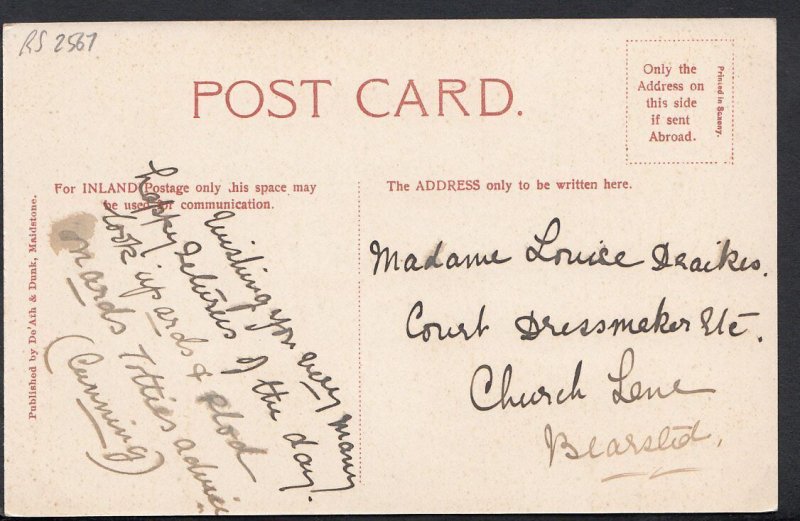 RS 2567
POST CARD.
Only the
Address on
this side
if sent
Abroad.
Printed in Saxony.
For INLAND Postage only this space may
be used for communication.
The ADDRESS only to be written here.
Published by De'Ath & Dunk, Maidstone.
Wishing you very many
happy returns of the day.
Look upards & plod
onards Totties advice
(Cunning)
Madame Louice Draikes.
Court Dressmaker Etc.
Church Lene
Bearsted.